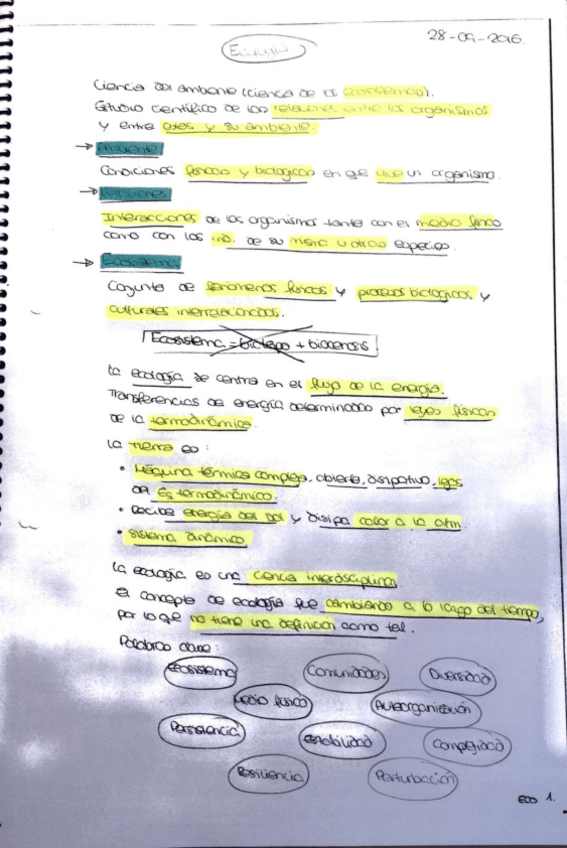 28-09-2016
Ecología
Ciencia del ambiente (ciencia de los ecosistemas).
Estudio científico de las relaciones entre los organismos
y entre estos y su ambiente.
→ Ambiente
Condiciones físicas y biológicas en q̄ vive un organismo.
→ Relaciones
Interacciones de los organismos tanto con el medio físico
como con los ind. de su misma u otras especies.
→ Ecosistema
Conjunto de fenómenos físicos y procesos biológicos y
culturales interrelacionados.
Ecosistema = biotopo + biocenosis
La ecología se centra en el flujo de la energía.
Transferencias de energía determinadas por leyes físicas
de la termodinámica.
La tierra es:
• Máquina térmica compleja, abierta, disipativa, lejos
del Eq termodinámico.
• Recibe energía del sol y disipa calor a la atm.
• Sistema dinámico
La ecología es una ciencia interdisciplina
El concepto de ecología fue cambiando a lo largo del tiempo,
por lo que no tiene una definición como tal.
Palabras clave:
Ecosistema Comunidades Diversidad
Medio físico Autoorganización
Persistencia Estabilidad Complejidad
Resiliencia Perturbación
ECO 1.